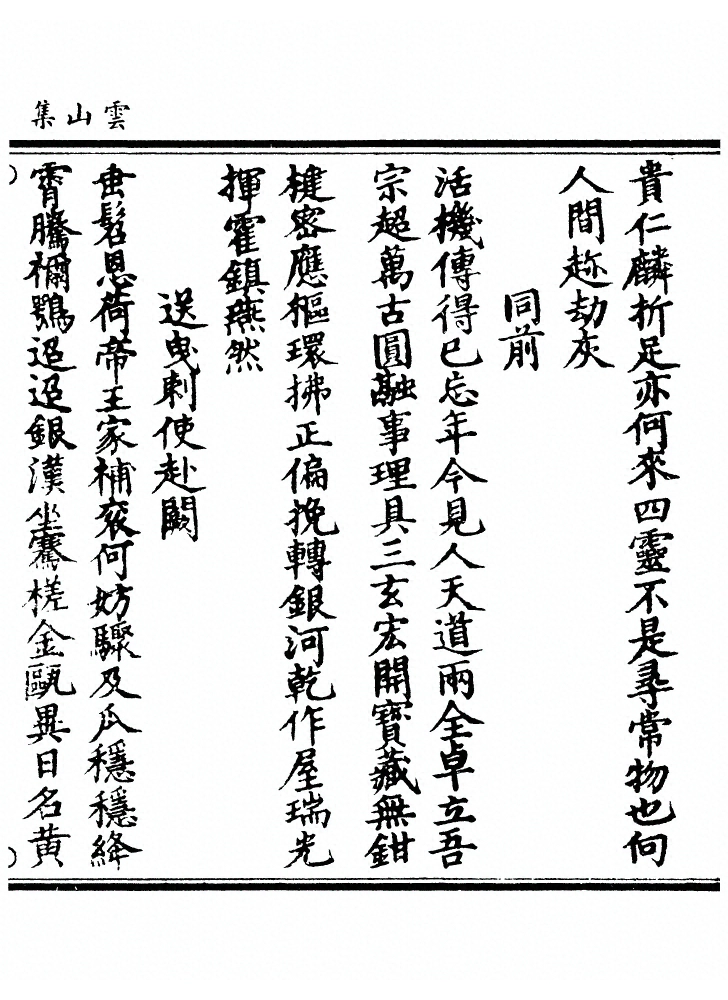 雲山集
貴仁麟折足亦何來四靈不是尋常物也向
人間趂劫灰
同前
活機傳得已忘年今見人天道兩全卓立吾
宗超萬古圓融事理具三玄宏開寶藏無鉗
楗密應樞環拂正偏挽轉銀河乾作屋瑞光
揮霍鎮燕然
送曳剌使赴闕
垂髫恩荷帝王家補袞何妨驟及瓜穩穩絳
霄騰禰鶚迢迢銀漢坐騫槎金甌異日名黄